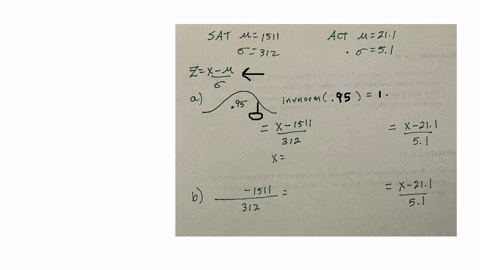 SAT μ=1511 ACT μ=21.1
σ=312 σ=5.1
Z=x-μ/σ ←
a) .95 invnorm(.95) = 1.
= x-1511/312 = x-21.1/5.1
x=
b) -1511/312 = = x-21.1/5.1